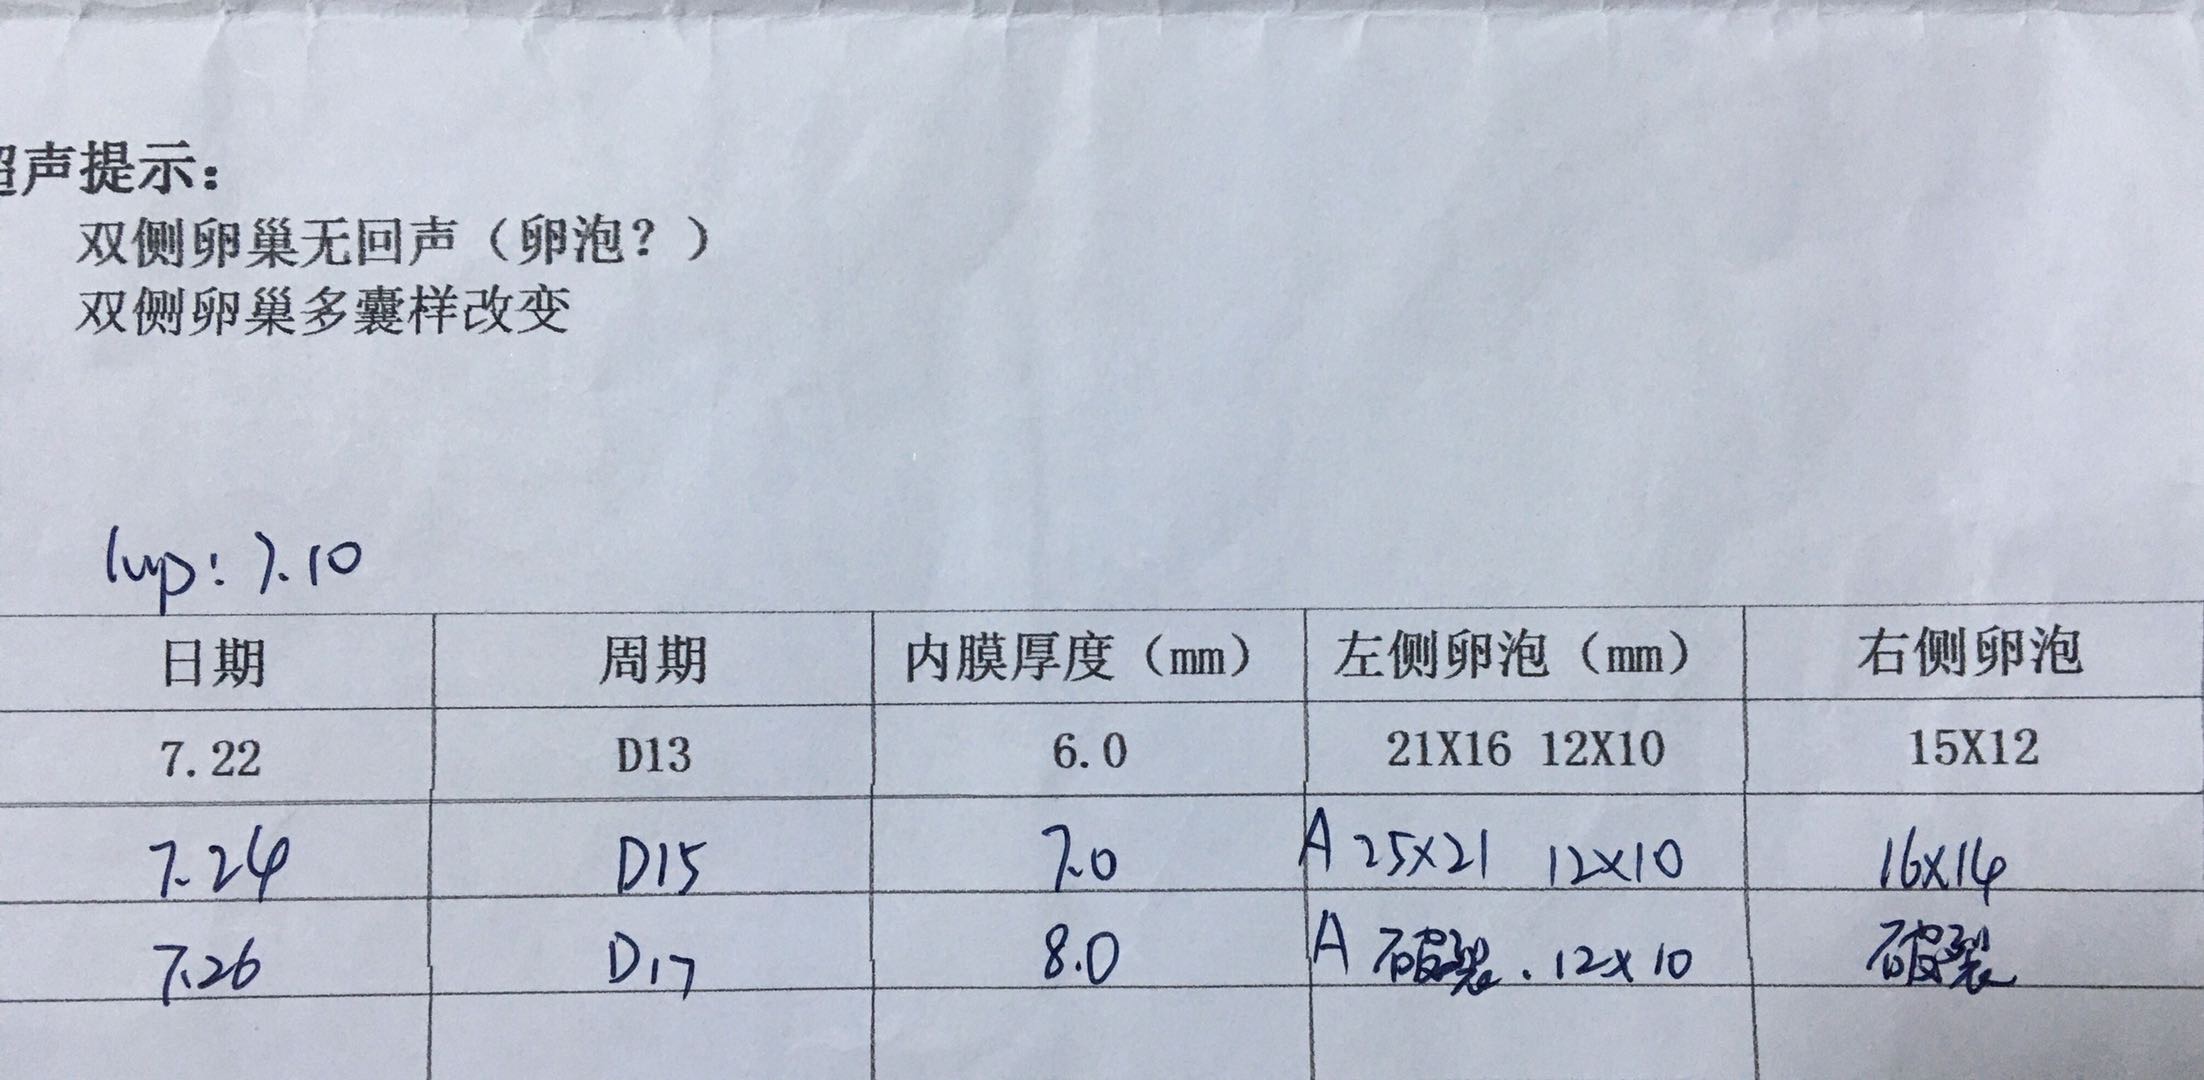 超声提示：
双侧卵巢无回声（卵泡？）
双侧卵巢多囊样改变
lmp: 7.10
日期 周期 内膜厚度（mm） 左侧卵泡（mm） 右侧卵泡
7.22 D13 6.0 21X16 12X10 15X12
7.24 D15 7.0 A 25X21 12X10 16X14
7.26 D17 8.0 A 破裂. 12X10 破裂